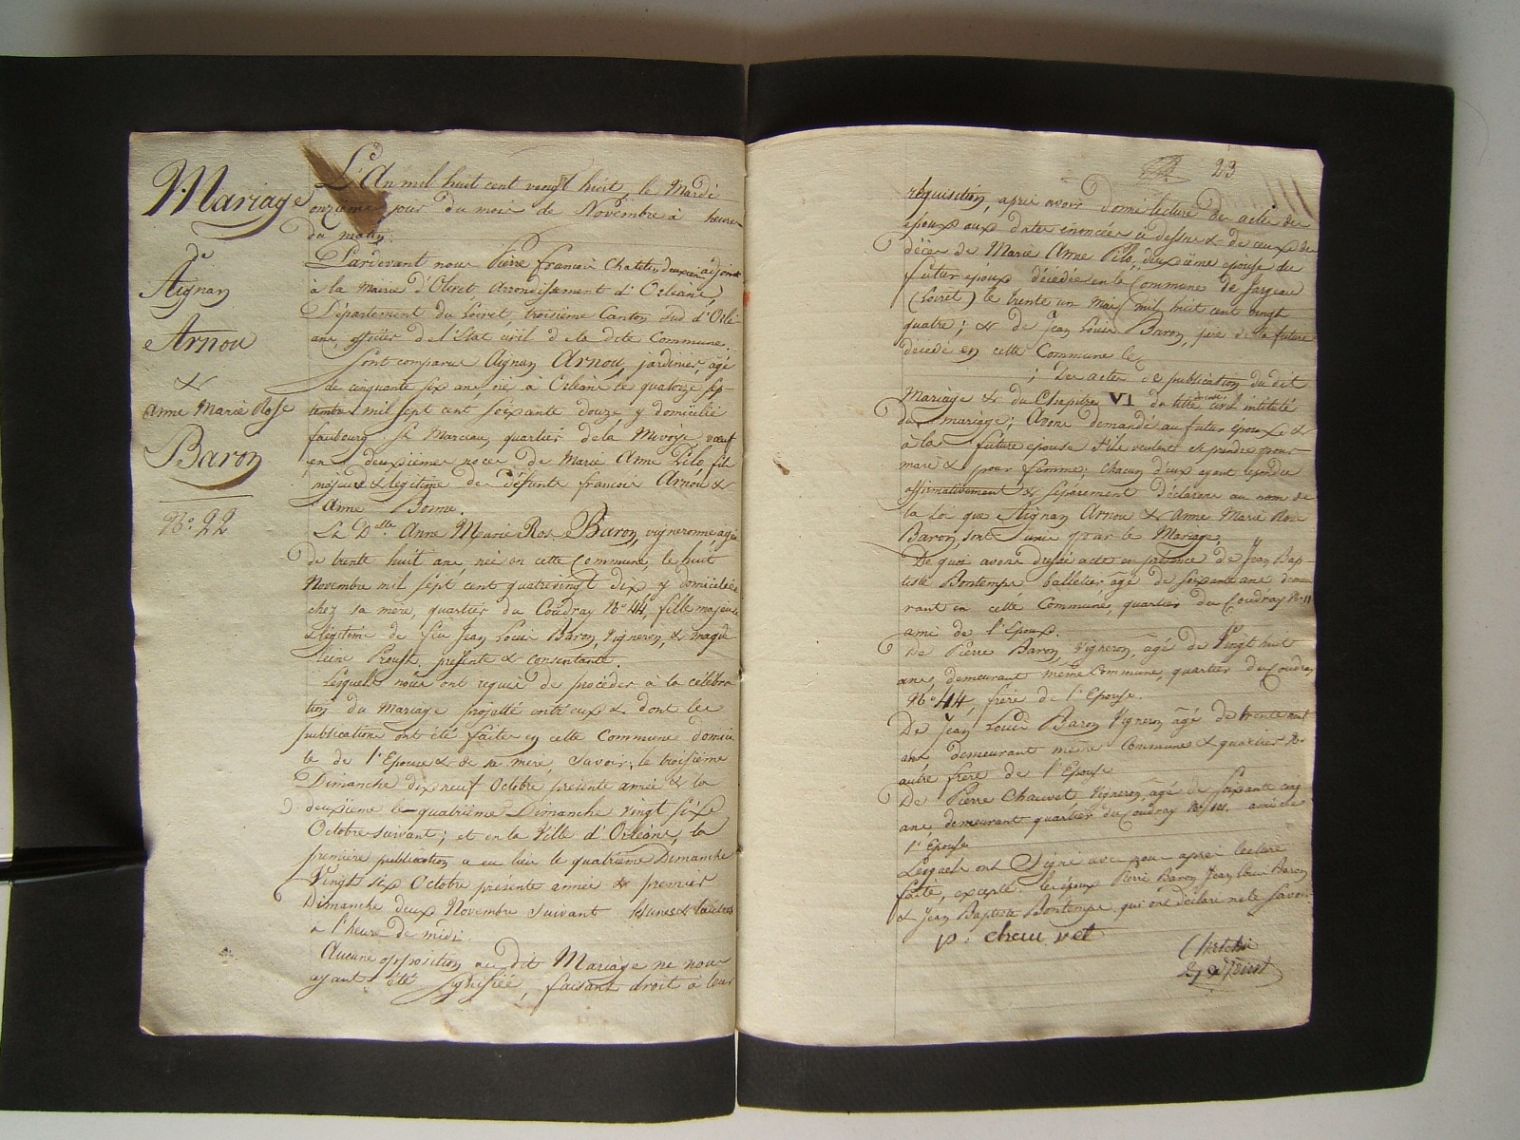 Mariage
de
Aignan
Arnou
&
Anne Marie Rose
Baron
No. 22
L'An mil huit cent vingt huit, le Mardi
onzieme jour du mois de Novembre à heures
du matin.
Pardevant nous Pierre francois Chatelin deuxieme adjoint
à la Mairie d'Olivet arrondissement d'Orleans,
Département du Loiret troisieme Canton sud d'Orlé-
ans, officier de l'Etat civil de la dite Commune.
Sont comparus Aignan Arnou, jardinier, âgé
de cinquante six ans, né à Orleans le quatorze sep-
tembre mil sept cent soixante douze y domicilié
faubourg St Marceau, quartier de la Mivoye, veuf
en deuxieme noces de Marie Anne Pilo, fils
majeur & légitime de défunts francois Arnou &
Anne Bonne.
Et Dlle Anne Marie Rose Baron, vigneronne agée
de trente huit ans, née en cette Commune, le huit
Novembre mil sept cent quatrevingt dix y domiciliée
chez sa mère, quartier du Coudray No. 44, fille majeure
& légitime de feu Jean Louis Baron, Vigneron, & Magde-
leine Proust, présente & consentante.
Lesquels nous ont requis de procéder à la célébra-
tion du Mariage projetté entr'eux & dont les
publications ont été faites en cette Commune domici-
le de l'Epouse & de sa mere, Savoir; la troisieme
Dimanche dix neuf Octobre présente année & la
deuxieme le quatrieme Dimanche vingt six
Octobre suivant; et en la Ville d'Orleans, la
premiere publication a eu lieu le quatrieme Dimanche
Vingt six Octobre présente année & premier
Dimanche deux Novembre suivant
à l'heure de midi.
Aucune opposition au dit Mariage ne nous
ayant été signifiée, faisant droit à leur
23
réquisition, après avoir donné lecture des actes des
époux aux dates énoncées ci dessus & de ceux de
décès de Marie Anne Pilo, deuxieme epouse du
futur epoux décédée en la Commune de Jargeau
(Loiret) le trente un mai mil huit cent vingt
quatre; & de Jean Louis Baron, père de la future
décédé en cette Commune le
; des actes de publication du dit
Mariage & du Chapitre VI du titre du code civil intitulé
du mariage; Avons demandé au futur epoux &
à la future epouse s'ils veulent se prendre pour
mari & pour femme; chacun d'eux ayant répondu
affirmativement & séparement déclarons au nom de
la loi que Aignan Arnou & Anne Marie Rose
Baron, sont unis par le Mariage.
De quoi avons dressé acte en présence de Jean Bap-
tiste Bontemps balletier agé de soixante ans demeu-
rant en cette Commune, quartier du Coudray No. 11
ami de l'Epoux.
De Pierre Baron, Vigneron, âgé de Vingt huit
ans, demeurant même Commune, quartier du Coudray
No. 44, frère de l'Epouse.
De Jean Louis Baron Vigneron âgé de trente
ans demeurant même Commune & quartier No.
autre frère de l'Epouse
De Pierre Chauvet Vigneron, âgé de soixante cinq
ans, demeurant quartier du Coudray No. ami de
l'Epouse
Lesquels ont Signé avec nous après lecture
faite, excepté les époux Pierre Baron Jean Louis Baron
& Jean Baptiste Bontemps qui ont déclaré ne le Savoir
p. chau vet
Chatelin
adjoint